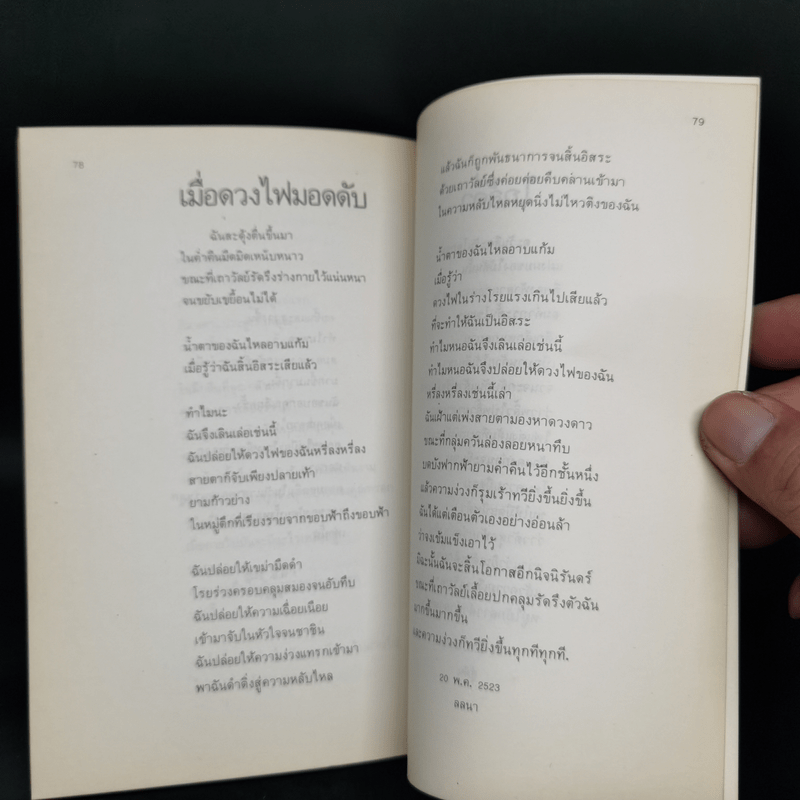 78
เมื่อดวงไฟมอดดับ
ฉันสะดุ้งตื่นขึ้นมา
ในค่ำคืนมืดมิดเหน็บหนาว
ขณะที่เถาวัลย์รัดรึงร่างกายไว้แน่นหนา
จนขยับเขยื้อนไม่ได้
น้ำตาของฉันไหลอาบแก้ม
เมื่อรู้ว่าฉันสิ้นอิสระเสียแล้ว
ทำไมนะ
ฉันจึงเลินเล่อเช่นนี้
ฉันปล่อยให้ดวงไฟของฉันหรี่ลงหรี่ลง
สายตาก็จับเพียงปลายเท้า
ยามก้าวย่าง
ในหมู่ตึกที่เรียงรายจากขอบฟ้าถึงขอบฟ้า
ฉันปล่อยให้เขม่ามืดดำ
โรยร่วงครอบคลุมสมองจนอับทึบ
ฉันปล่อยให้ความเฉื่อยเนือย
เข้ามาจับในหัวใจจนชาชิน
ฉันปล่อยให้ความง่วงแทรกเข้ามา
พาฉันดำดิ่งสู่ความหลับใหล
79
แล้วฉันก็ถูกพันธนาการจนสิ้นอิสระ
ด้วยเถาวัลย์ซึ่งค่อยค่อยคืบคลานเข้ามา
ในความหลับใหลหยุดนิ่งไม่ไหวติงของฉัน
น้ำตาของฉันไหลอาบแก้ม
เมื่อรู้ว่า
ดวงไฟในร่างโรยแรงเกินไปเสียแล้ว
ที่จะทำให้ฉันเป็นอิสระ
ทำไมหนอฉันจึงเลินเล่อเช่นนี้
ทำไมหนอฉันจึงปล่อยให้ดวงไฟของฉัน
หรี่ลงหรี่ลงเช่นนี้เล่า
ฉันเฝ้าแต่เพ่งสายตามองหาดวงดาว
ขณะที่กลุ่มควันล่องลอยหนาทึบ
บดบังฟากฟ้ายามค่ำคืนไว้อีกชั้นหนึ่ง
แล้วความง่วงก็รุมเร้าทวียิ่งขึ้นยิ่งขึ้น
ฉันได้แต่เตือนตัวเองอย่างอ่อนล้า
ว่าจงเข้มแข็งเอาไว้
มิฉะนั้นฉันจะสิ้นโอกาสอีกนิจนิรันดร์
ขณะที่เถาวัลย์เลื้อยปกคลุมรัดรึงตัวฉัน
มากขึ้นมากขึ้น
และความง่วงก็ทวียิ่งขึ้นทุกทีทุกที.
20 พ.ค. 2523
ลลนา